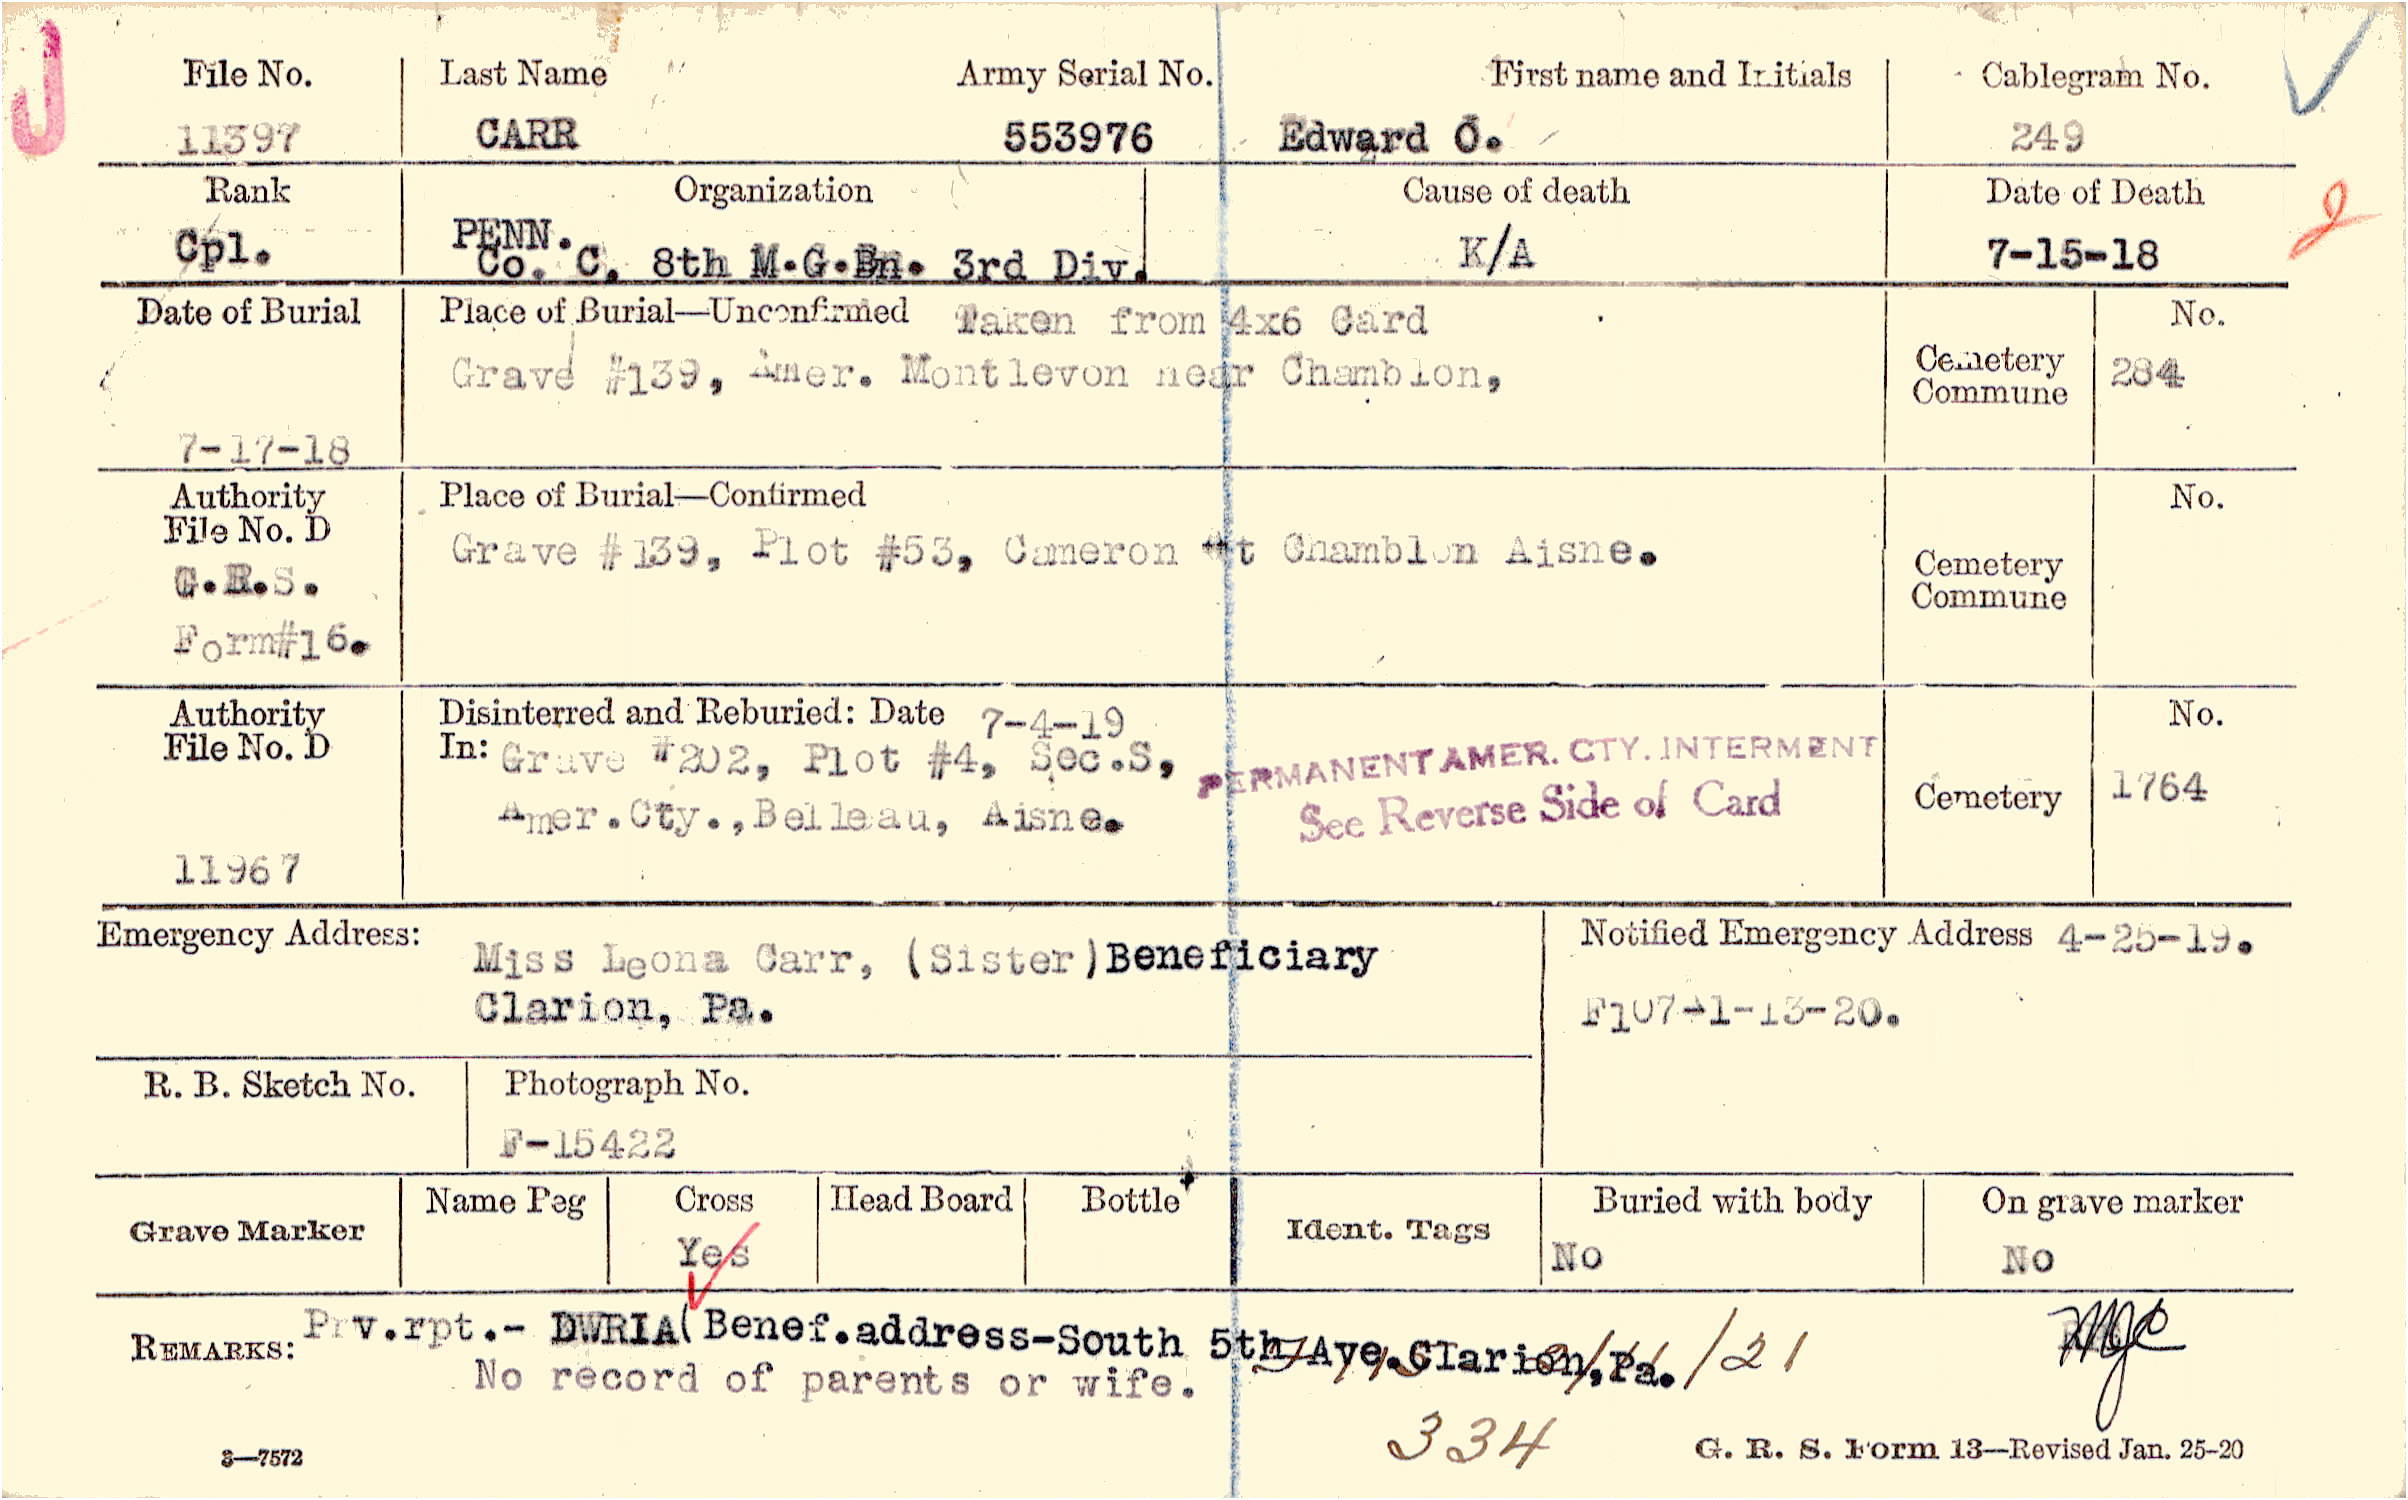 J
File No. Last Name Army Serial No. First name and Initials Cablegram No.
11397 CARR 553976 Edward O. 249
Rank Organization Cause of death Date of Death
Cpl. PENN. K/A 7-15-18
Co. C, 8th M.G.Bn. 3rd Div.
Date of Burial Place of Burial—Unconfirmed Taken from 4x6 Card No.
Grave #139, Amer. Montlevon near Chamblon, Cemetery Commune 284
7-17-18
Authority File No. D Place of Burial—Confirmed No.
Grave #139, Plot #53, Cameron Chamblon Aisne. Cemetery Commune
G.R.S.
Form#16.
Authority File No. D Disinterred and Reburied: Date 7-4-19 No.
In: Grave #202, Plot #4, Sec.S, PERMANENT AMER. CTY. INTERMENT
Amer.Cty.,Belleau, Aisne. See Reverse Side of Card Cemetery 1764
11967
Emergency Address: Notified Emergency Address 4-25-19.
Miss Leona Carr, (Sister)Beneficiary
Clarion, Pa. F107-1-13-20.
R. B. Sketch No. Photograph No.
F-15422
Grave Marker Name Peg Cross Head Board Bottle Ident. Tags Buried with body On grave marker
Yes No No
REMARKS: Prv.rpt.- DWRIA(Benef.address-South 5th Ave.Clarion,Pa. /21
No record of parents or wife.
334
3—7572 G. R. S. Form 13—Revised Jan. 25-20